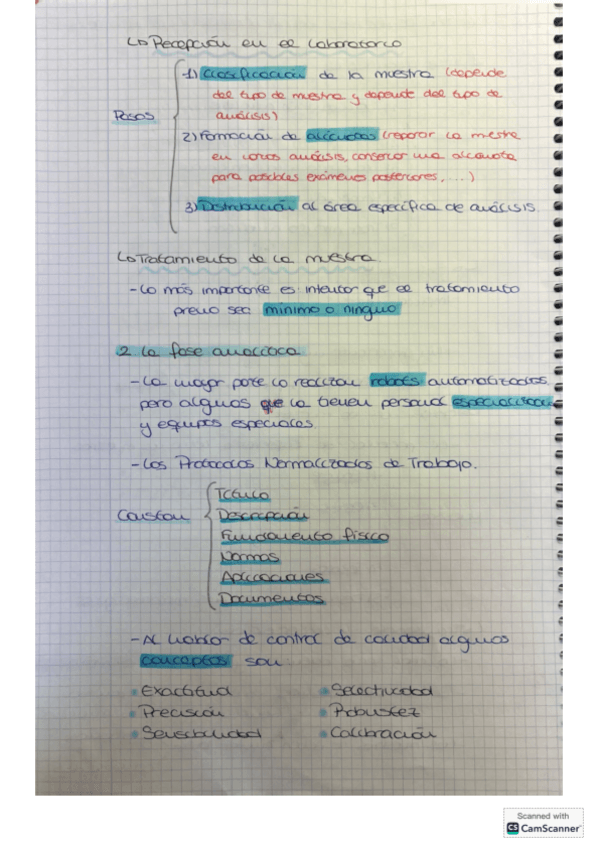 ↳ Recepción en el laboratorio
1) Clasificación de la muestra (depende
del tipo de muestra y depende del tipo de
análisis)
Pasos
2) Formación de alícuotas (reparar la mestra
en varios análisis, conservar una alícuota
para posibles exámenes posteriores, ...)
3) Distribución al área específica de análisis.
↳ Tratamiento de la muestra.
- Lo más importante es intentar que el tratamiento
previo sea mínimo o ninguno
2 La fase analítica
- La mayor parte lo realizan robots automatizados
pero algunos que la tienen personal especialitzado
y equipos especiales
- Los Protocolos Normalizados de Trabajo.
Constan
Título
Descripción
Fundamento físico
Normas
Aplicaciones
Documentos
- Al hablar de control de calidad algunos
conceptos son
• Exactitud • Selectividad
• Precisión • Robustez
• Sensibilidad • Calibración
Scanned with
CS CamScanner